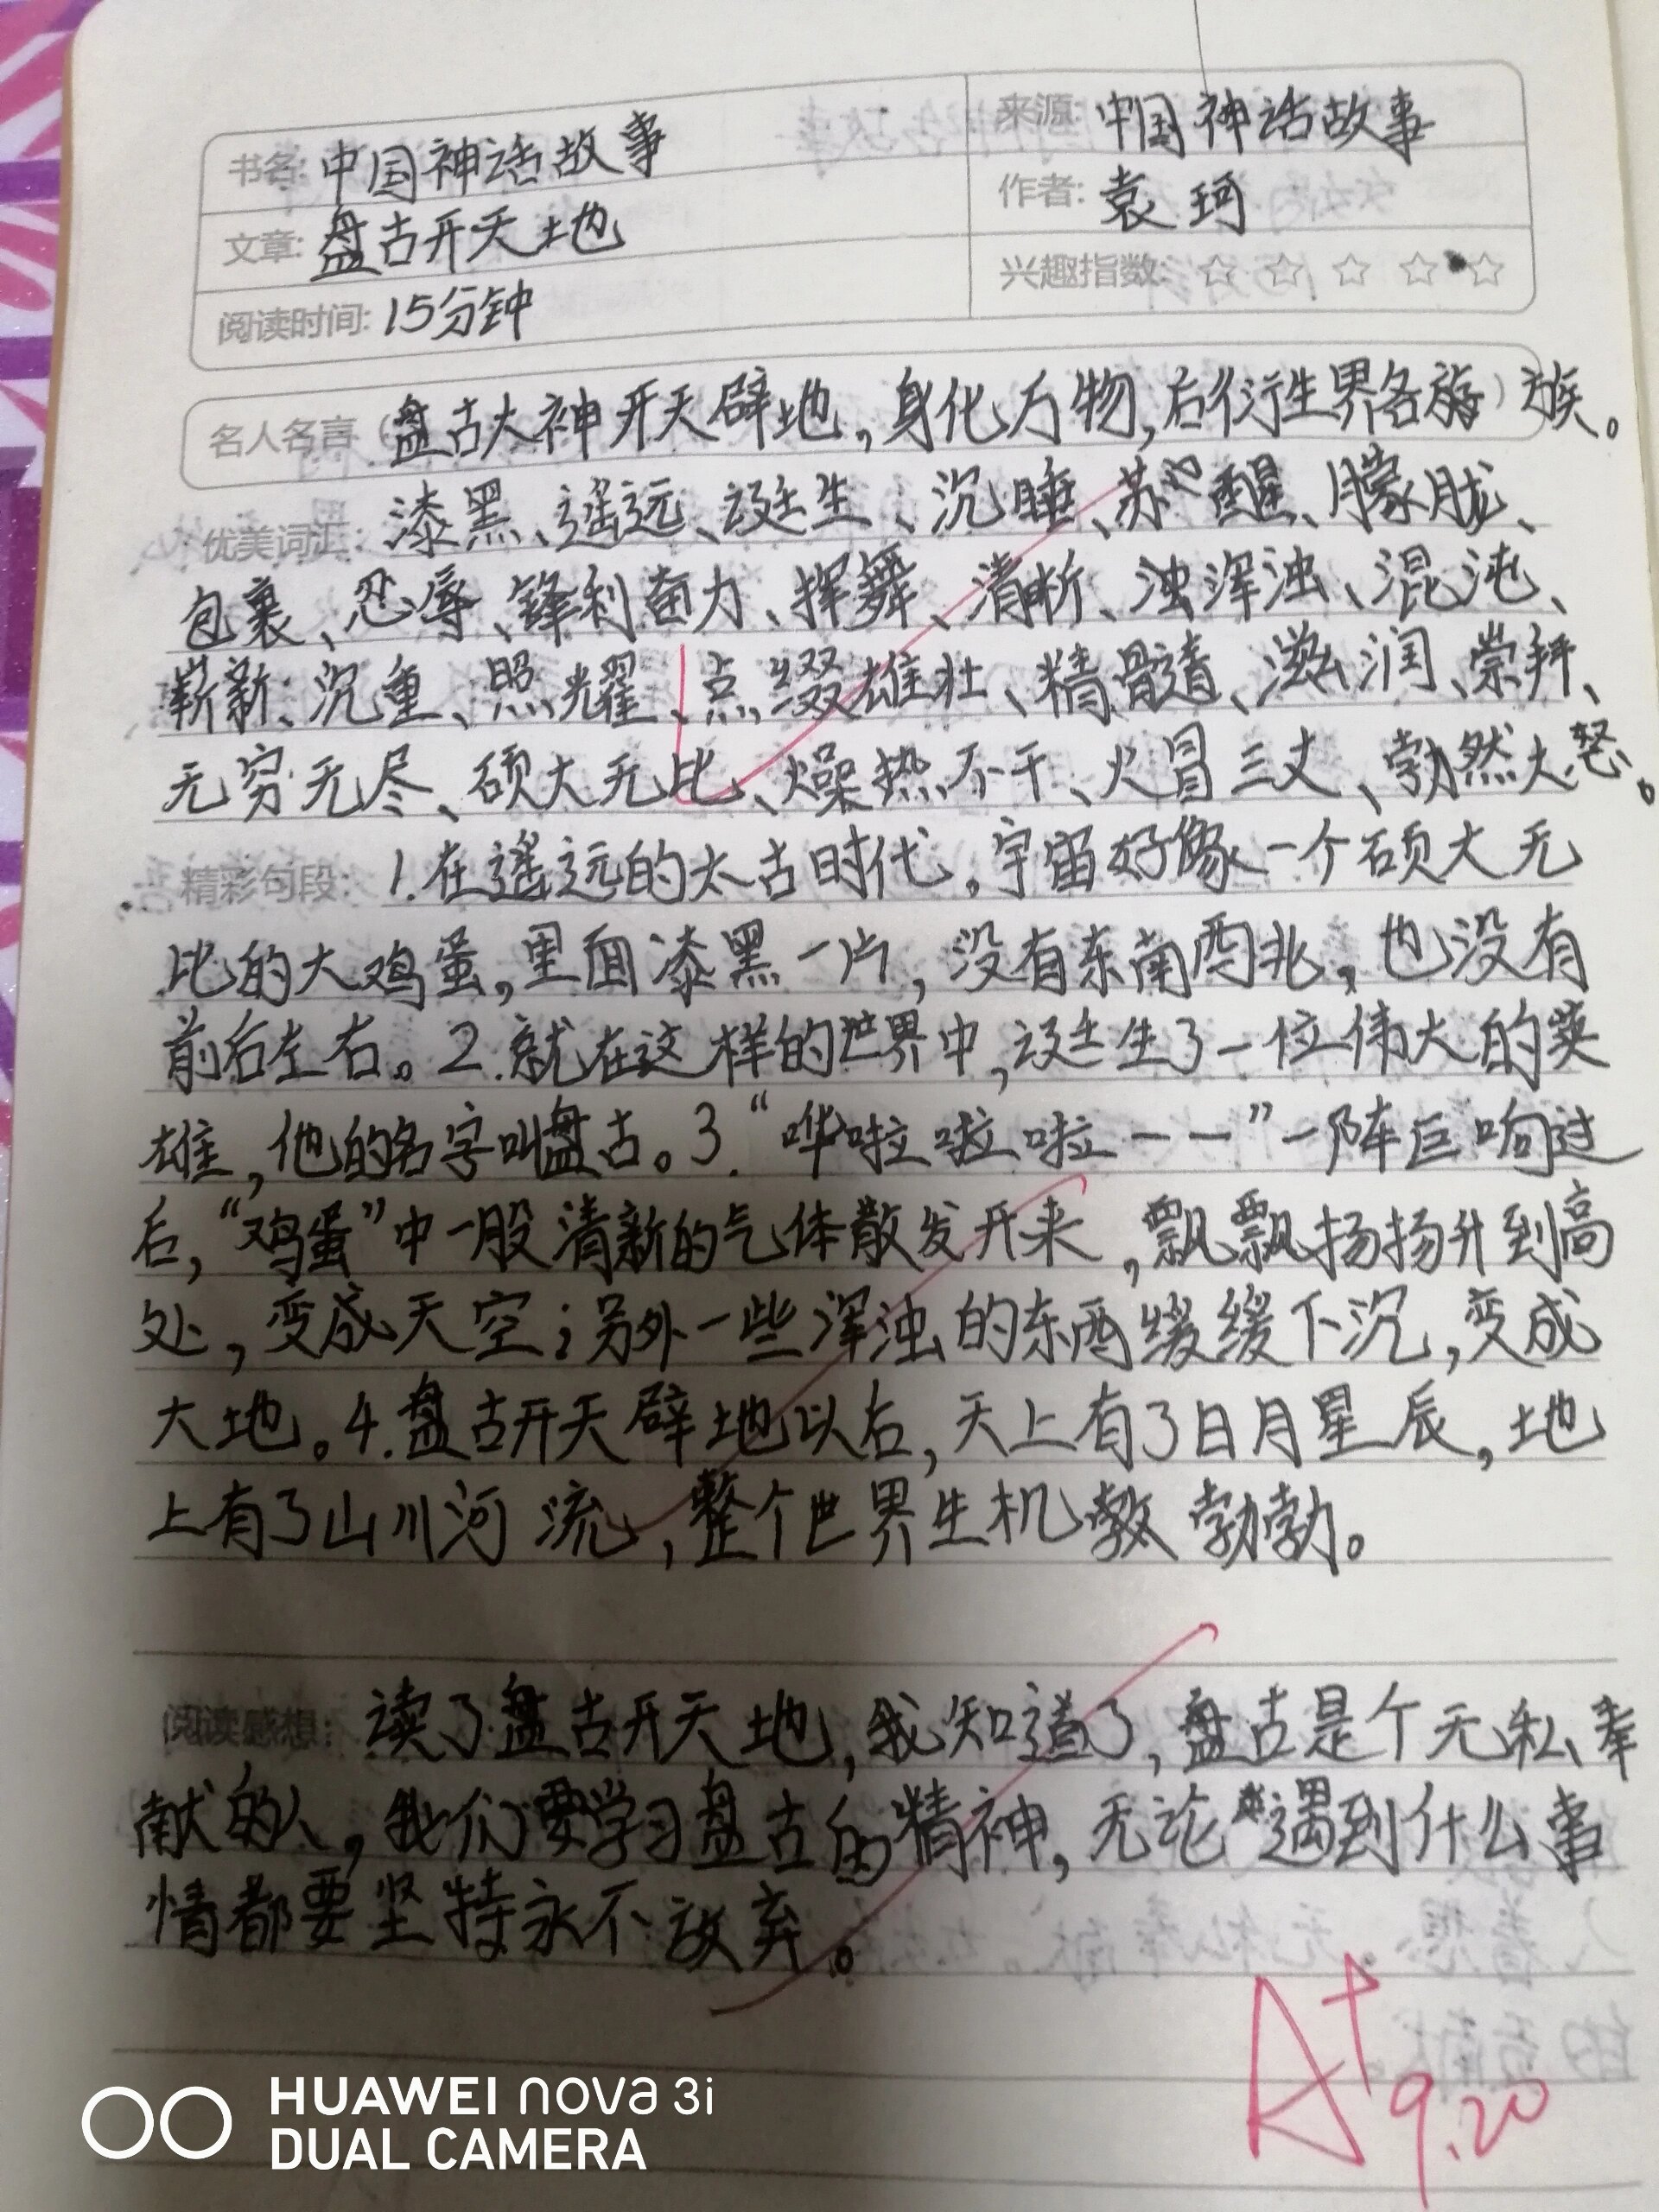 书名: 中国神话故事
来源: 中国神话故事
文章: 盘古开天地
作者: 袁珂
阅读时间: 15分钟
兴趣指数: ☆ ☆ ☆ ☆ ☆
名人名言（盘古大神开天辟地,身化万物,后衍生界各族）族。
优美词汇: 漆黑、遥远、诞生、沉睡、苏醒、朦胧、
包裹、忍辱、锋利奋力、挥舞、清晰、浊浑浊、混沌、
崭新、沉重、照耀、点缀雄壮、精髓、滋润、崇拜、
无穷无尽、硕大无比、燥热不干、火冒三丈、勃然大怒。
精彩句段: 1.在遥远的太古时代,宇宙好像一个硕大无
比的大鸡蛋,里面漆黑一片,没有东南西北,也没有
前后左右。2.就在这样的世界中,诞生了一位伟大的英
雄,他的名字叫盘古。3.“哗啦啦啦——”一阵巨响过
后,“鸡蛋”中一股清新的气体散发开来,飘飘扬扬升到高
处,变成天空;另外一些浑浊的东西缓缓下沉,变成
大地。4.盘古开天辟地以后,天上有了日月星辰,地
上有了山川河流,整个世界生机勃勃。
阅读感想: 读了盘古开天地,我知道了,盘古是个无私奉
献的人,我们要学习盘古的精神,无论遇到什么事
情都要坚持永不放弃。
A+
9.20
HUAWEI nova 3i
DUAL CAMERA